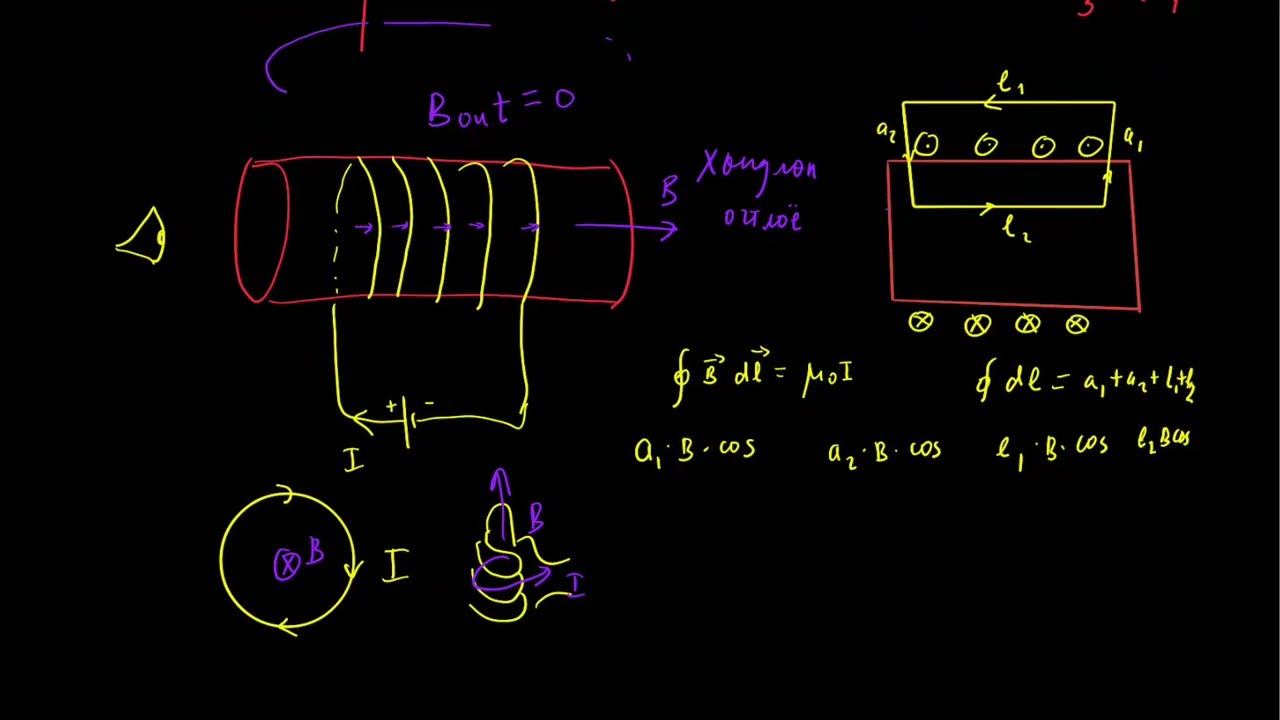 B out = 0
l₁
a₂
a₁
B
l₂
+ -
I
∮ B⃗ dl⃗ = μ₀I
∮ dl = a₁+a₂+l₁+l₂
a₁·B·cos
a₂·B·cos
l₁·B·cos
l₂Bcos
B
I
B
I